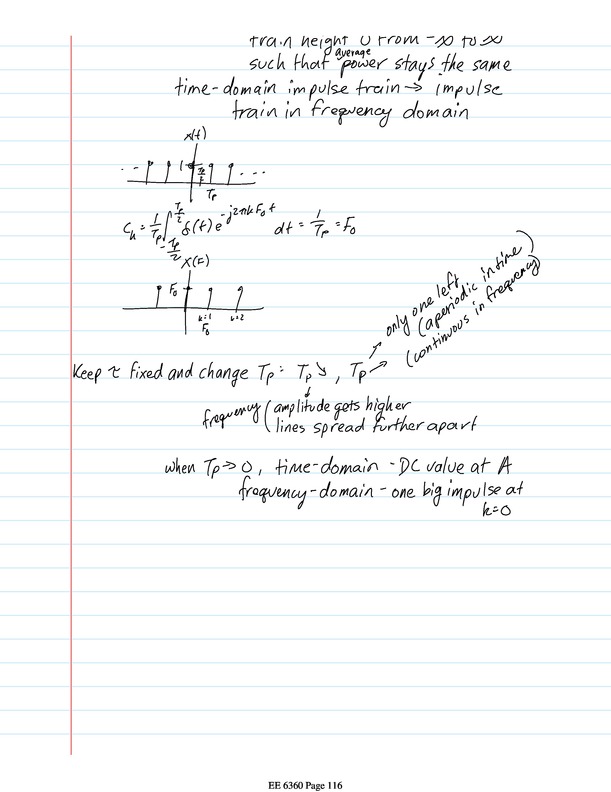 train height 0 from -∞ to ∞
such that average power stays the same
time-domain impulse train → impulse
train in frequency domain
x(t)
... 1 ...
Tp
C_k = 1/Tp ∫_{-Tp/2}^{Tp/2} δ(t) e^{-j2πkF₀t} dt = 1/Tp = F₀
X(F)
F₀
k=1 k=2
F₀
only one left
(aperiodic in time)
(continuous in frequency)
Keep τ fixed and change Tp: Tp↘, Tp↗
frequency (amplitude gets higher
lines spread further apart
when Tp → 0, time-domain - DC value at A
frequency-domain - one big impulse at
k=0
EE 6360 Page 116